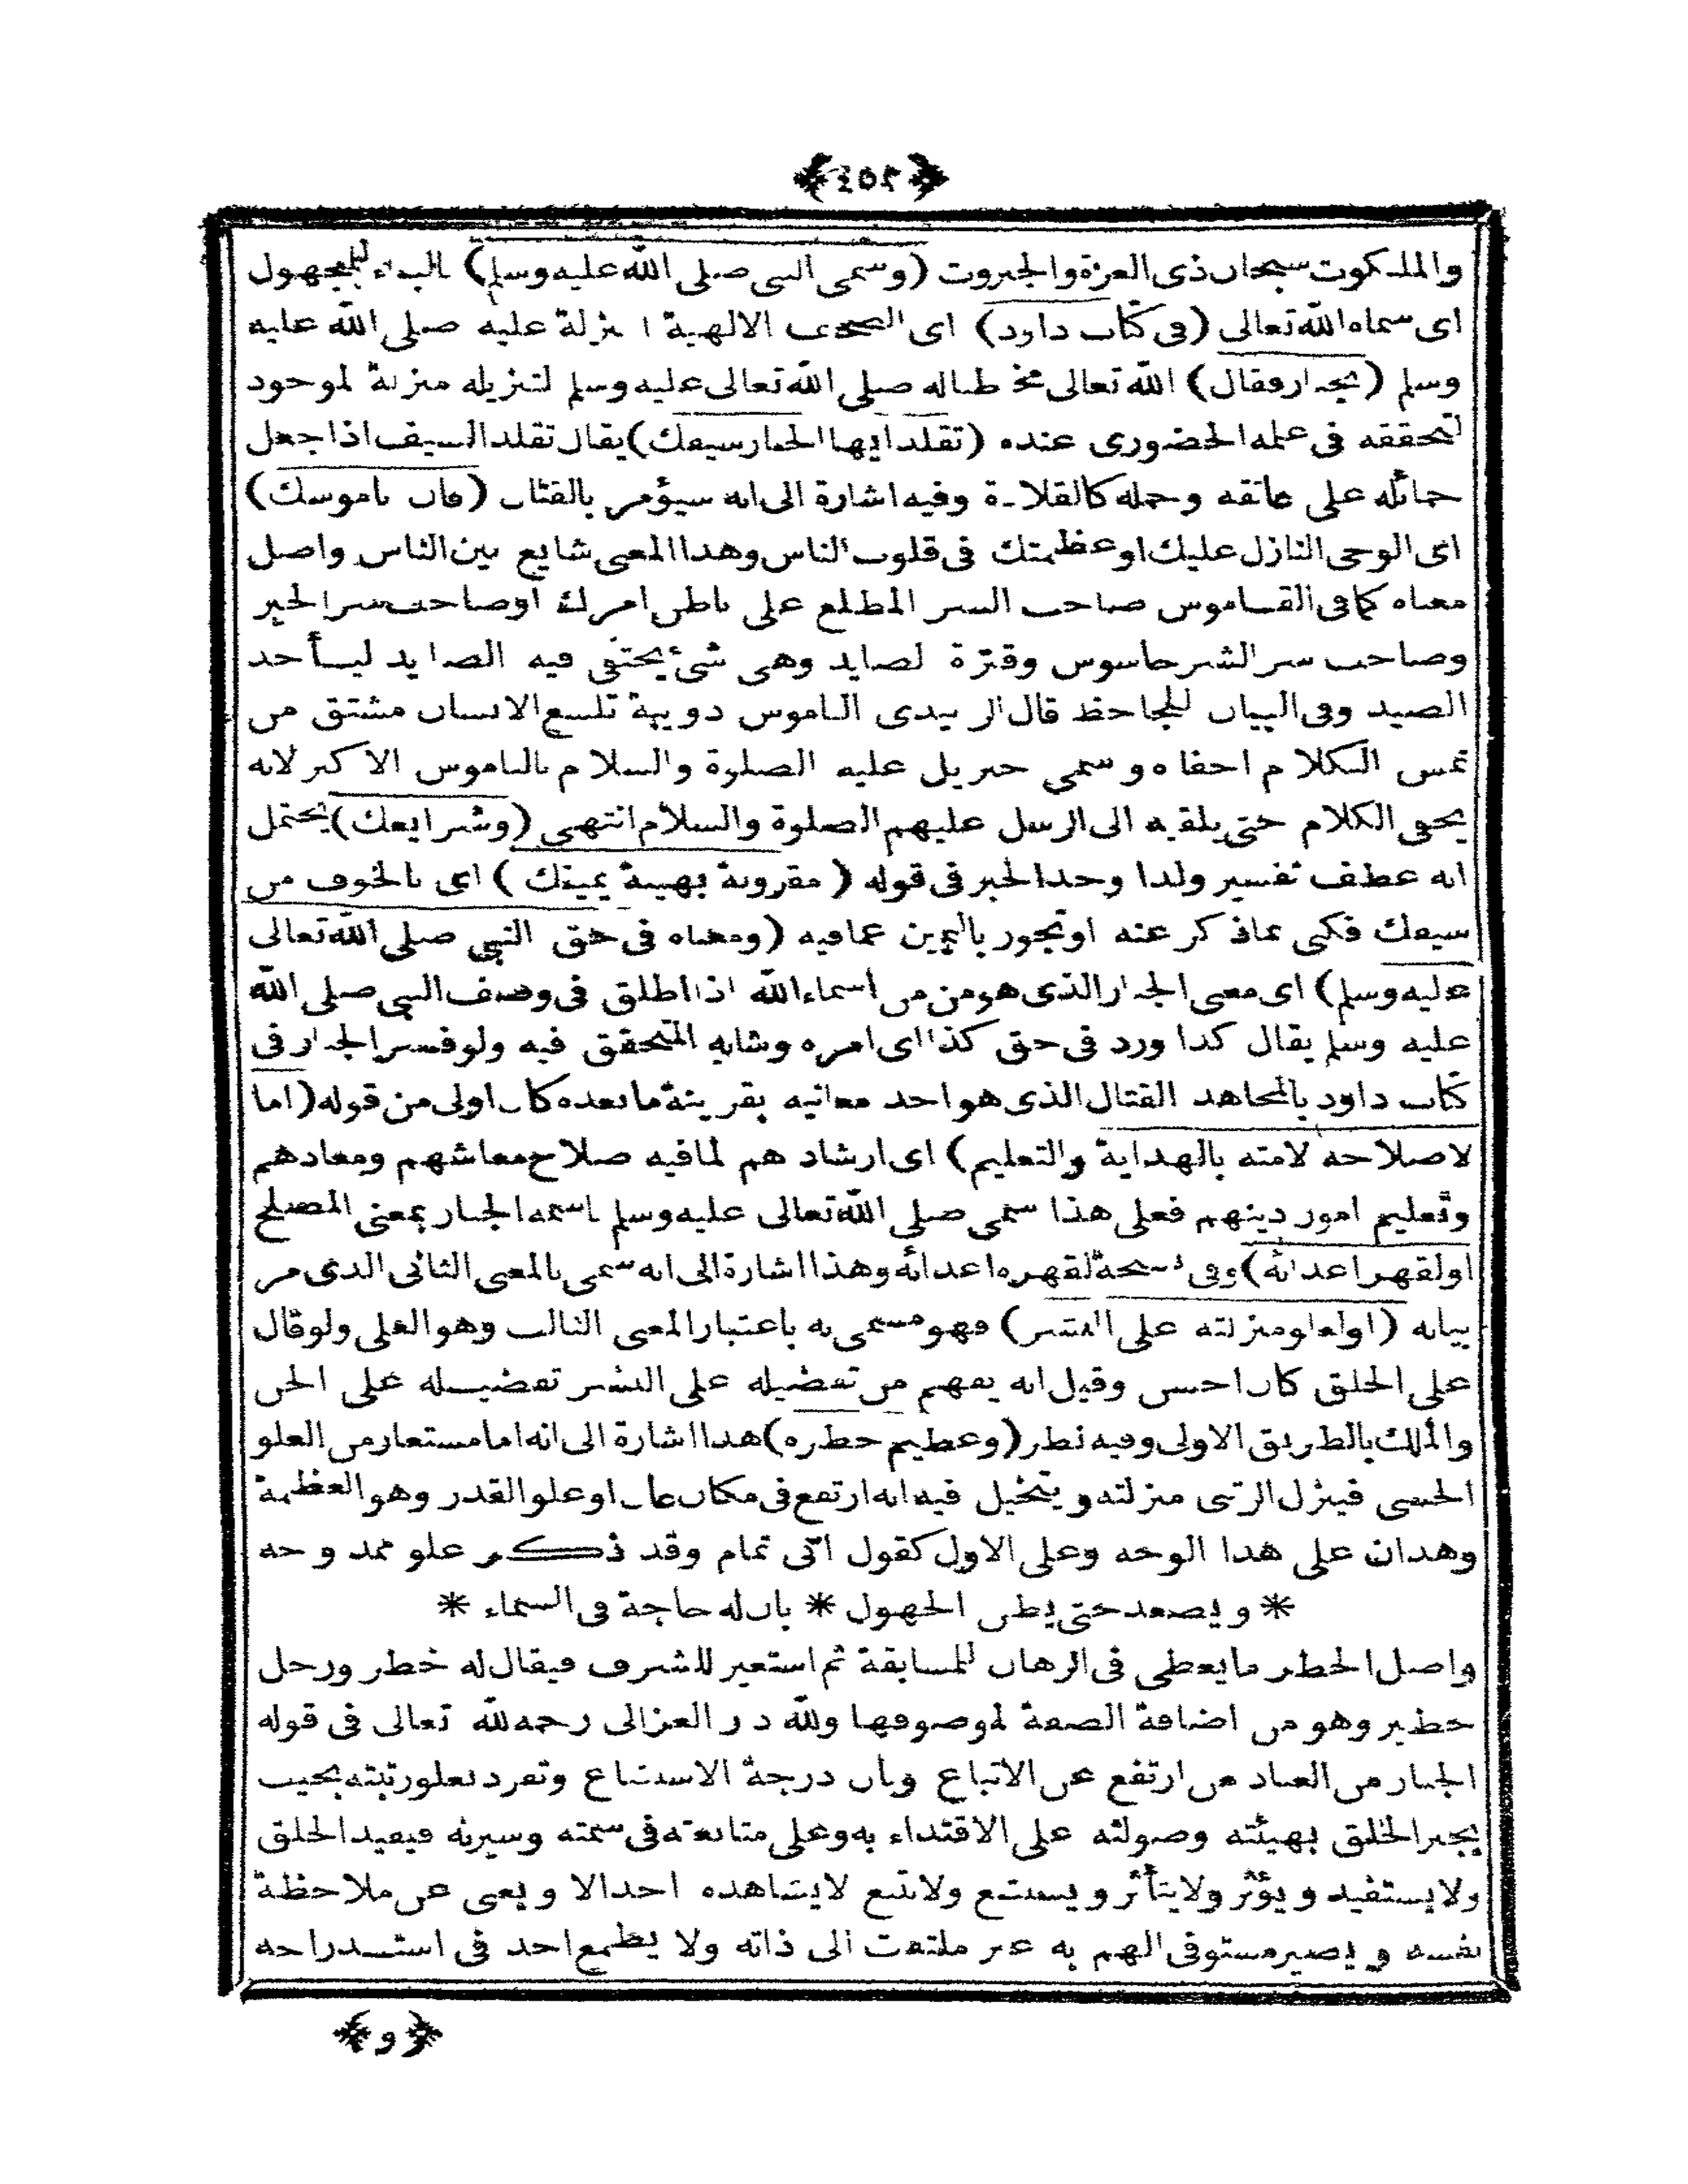 ﴿٤٥٢﴾
والملكوت سبحان ذى العزة والجبروت (وسمى النبى صلى الله عليه وسلم) بالبناء للمجهول
اى سماه الله تعالى (فى كتاب داود) اى الصحف الالهية المنزلة عليه صلى الله عليه
وسلم (بجبار وقال) الله تعالى مخاطباله صلى الله تعالى عليه وسلم لتنزيله منزلة لموجود
لتحققه فى علمه الحضورى عنده (تقلد ايها الجبار سيفك) يقال تقلد السيف اذا جعل
حمائله على عاتقه وحمله كالقلادة وفيه اشارة الى انه سيؤمر بالقتال (فان ناموسك)
اى الوحى النازل عليك او عظمتك فى قلوب الناس وهذا المعنى شايع بين الناس واصل
معناه كما فى القاموس صاحب السر المطلع على باطن امرك او صاحب سر الخير
وصاحب سر الشر جاسوس وقترة لصايد وهى شئ يختفى فيه الصايد ليأخذ
الصيد وفى البيان للجاحظ قال الزبيدى الناموس دويبة تلسع الانسان مشتق من
نمس الكلام اخفاه وسمى جبريل عليه الصلوة والسلام بالناموس الاكبر لانه
يخفى الكلام حتى يلقيه الى الرسل عليهم الصلوة والسلام انتهى (وشرايعك) يحتمل
انه عطف تفسير ولذا وحد الخبر فى قوله (مقرونة بهيبة يمينك) اى بالخوف من
سيفك فكنى عماذكر عنه او تجوز باليمين عما فيه (ومعناه فى حق النبى صلى الله تعالى
عليه وسلم) اى معنى الجبار الذى هو من من اسماء الله اذا اطلق فى وصف النبى صلى الله
عليه وسلم يقال كذا ورد فى حق كذا اى امره وشانه المتحقق فيه ولو فسر الجبار فى
كتاب داود بالمجاهد القتال الذى هو احد معانيه بقرينة ما بعده كان اولى من قوله (اما
لاصلاحه لامته بالهداية والتعليم) اى ارشاد هم لما فيه صلاح معاشهم ومعادهم
وتعليم امور دينهم فعلى هذا سمى صلى الله تعالى عليه وسلم باسمه الجبار بمعنى المصلح
(او لقهر اعدائه) وفى نسخة لقهره اعدائه وهذا اشارة الى انه سمى بالمعنى الثانى الذى مر
بيانه (او لعلو منزلته على البشر) فهو مسمى به باعتبار المعنى الثالث وهو العلى ولو قال
على الخلق كان احسن وقيل انه يفهم من تفضيله على البشر تفضيله على الجن
والملك بالطريق الاولى وفيه نظر (وعظيم خطره) هذا اشارة الى انه اما مستعار من العلو
الحسى فينزل الرتبى منزلته ويتخيل فيه انه ارتفع فى مكان عال او علو القدر وهو العظمة
وهذان على هذا الوجه وعلى الاول كقول ابى تمام وقد ذكر علو ممدوحه
* ويصعد حتى يظن الجهول * بان له حاجة فى السماء *
واصل الخطر ما يعطى فى الرهان للمسابقة ثم استعير للشرف فيقال له خطر ورجل
خطير وهو من اضافة الصفة لموصوفها ولله در الغزالى رحمه لله تعالى فى قوله
الجبار من العباد من ارتفع عن الاتباع ونال درجة الاستتباع وتفرد بعلو رتبته بحيث
يجبر الخلق بهيئته وصولته على الاقتداء به وعلى متابعته فى سمته وسيرته فيفيد الخلق
ولا يستفيد ويؤثر ولا يتأثر ويستتبع ولا يتبع لا يشاهده احد الا ويفنى عن ملاحظة
نفسه ويصير مستوفى الهم به غير ملتفت الى ذاته ولا يطمع احد فى استدراجه
﴿و﴾